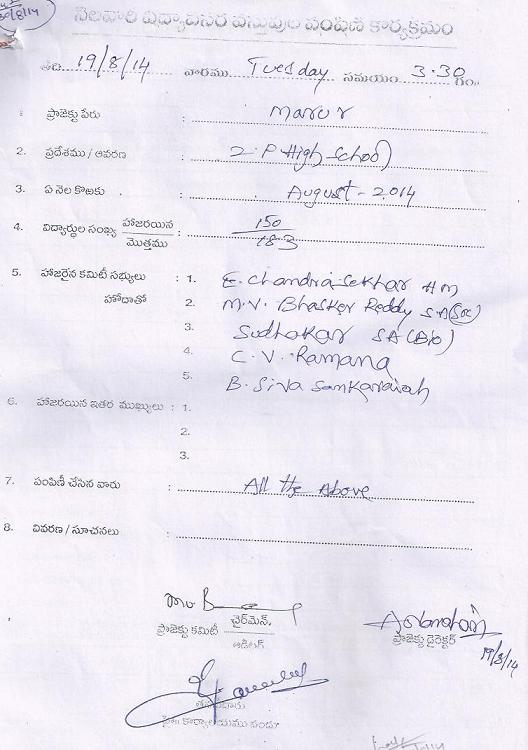 20/8/14
నెలవారి విద్యావసర వస్తువుల పంపిణి కార్యక్రమం
తేది. 19/8/14 వారము. Tuesday సమయం 3.30 గం.
1. ప్రాజెక్టు పేరు : Marur
2. ప్రదేశము / ఆవరణ : Z.P High School
3. ఏ నెల కొఱకు : August - 2014
4. విద్యార్థుల సంఖ్య హాజరయిన / మొత్తము : 150 / 183
5. హాజరైన కమిటీ సభ్యులు : 1. E. Chandra Sekhar HM
హోదాతో 2. M.V. Bhasker Reddy SA (Soc)
3. Sudhakar SA (Bio)
4. C.V. Ramana
5. B. Siva Sankaraiah
6. హాజరయిన ఇతర ముఖ్యులు : 1.
2.
3.
7. పంపిణీ చేసిన వారు : All the Above
8. వివరణ / సూచనలు :
ప్రాజెక్టు కమిటీ చైర్‌మెన్. / ఆడిటర్
ప్రాజెక్టు డైరెక్టర్
19/8/14